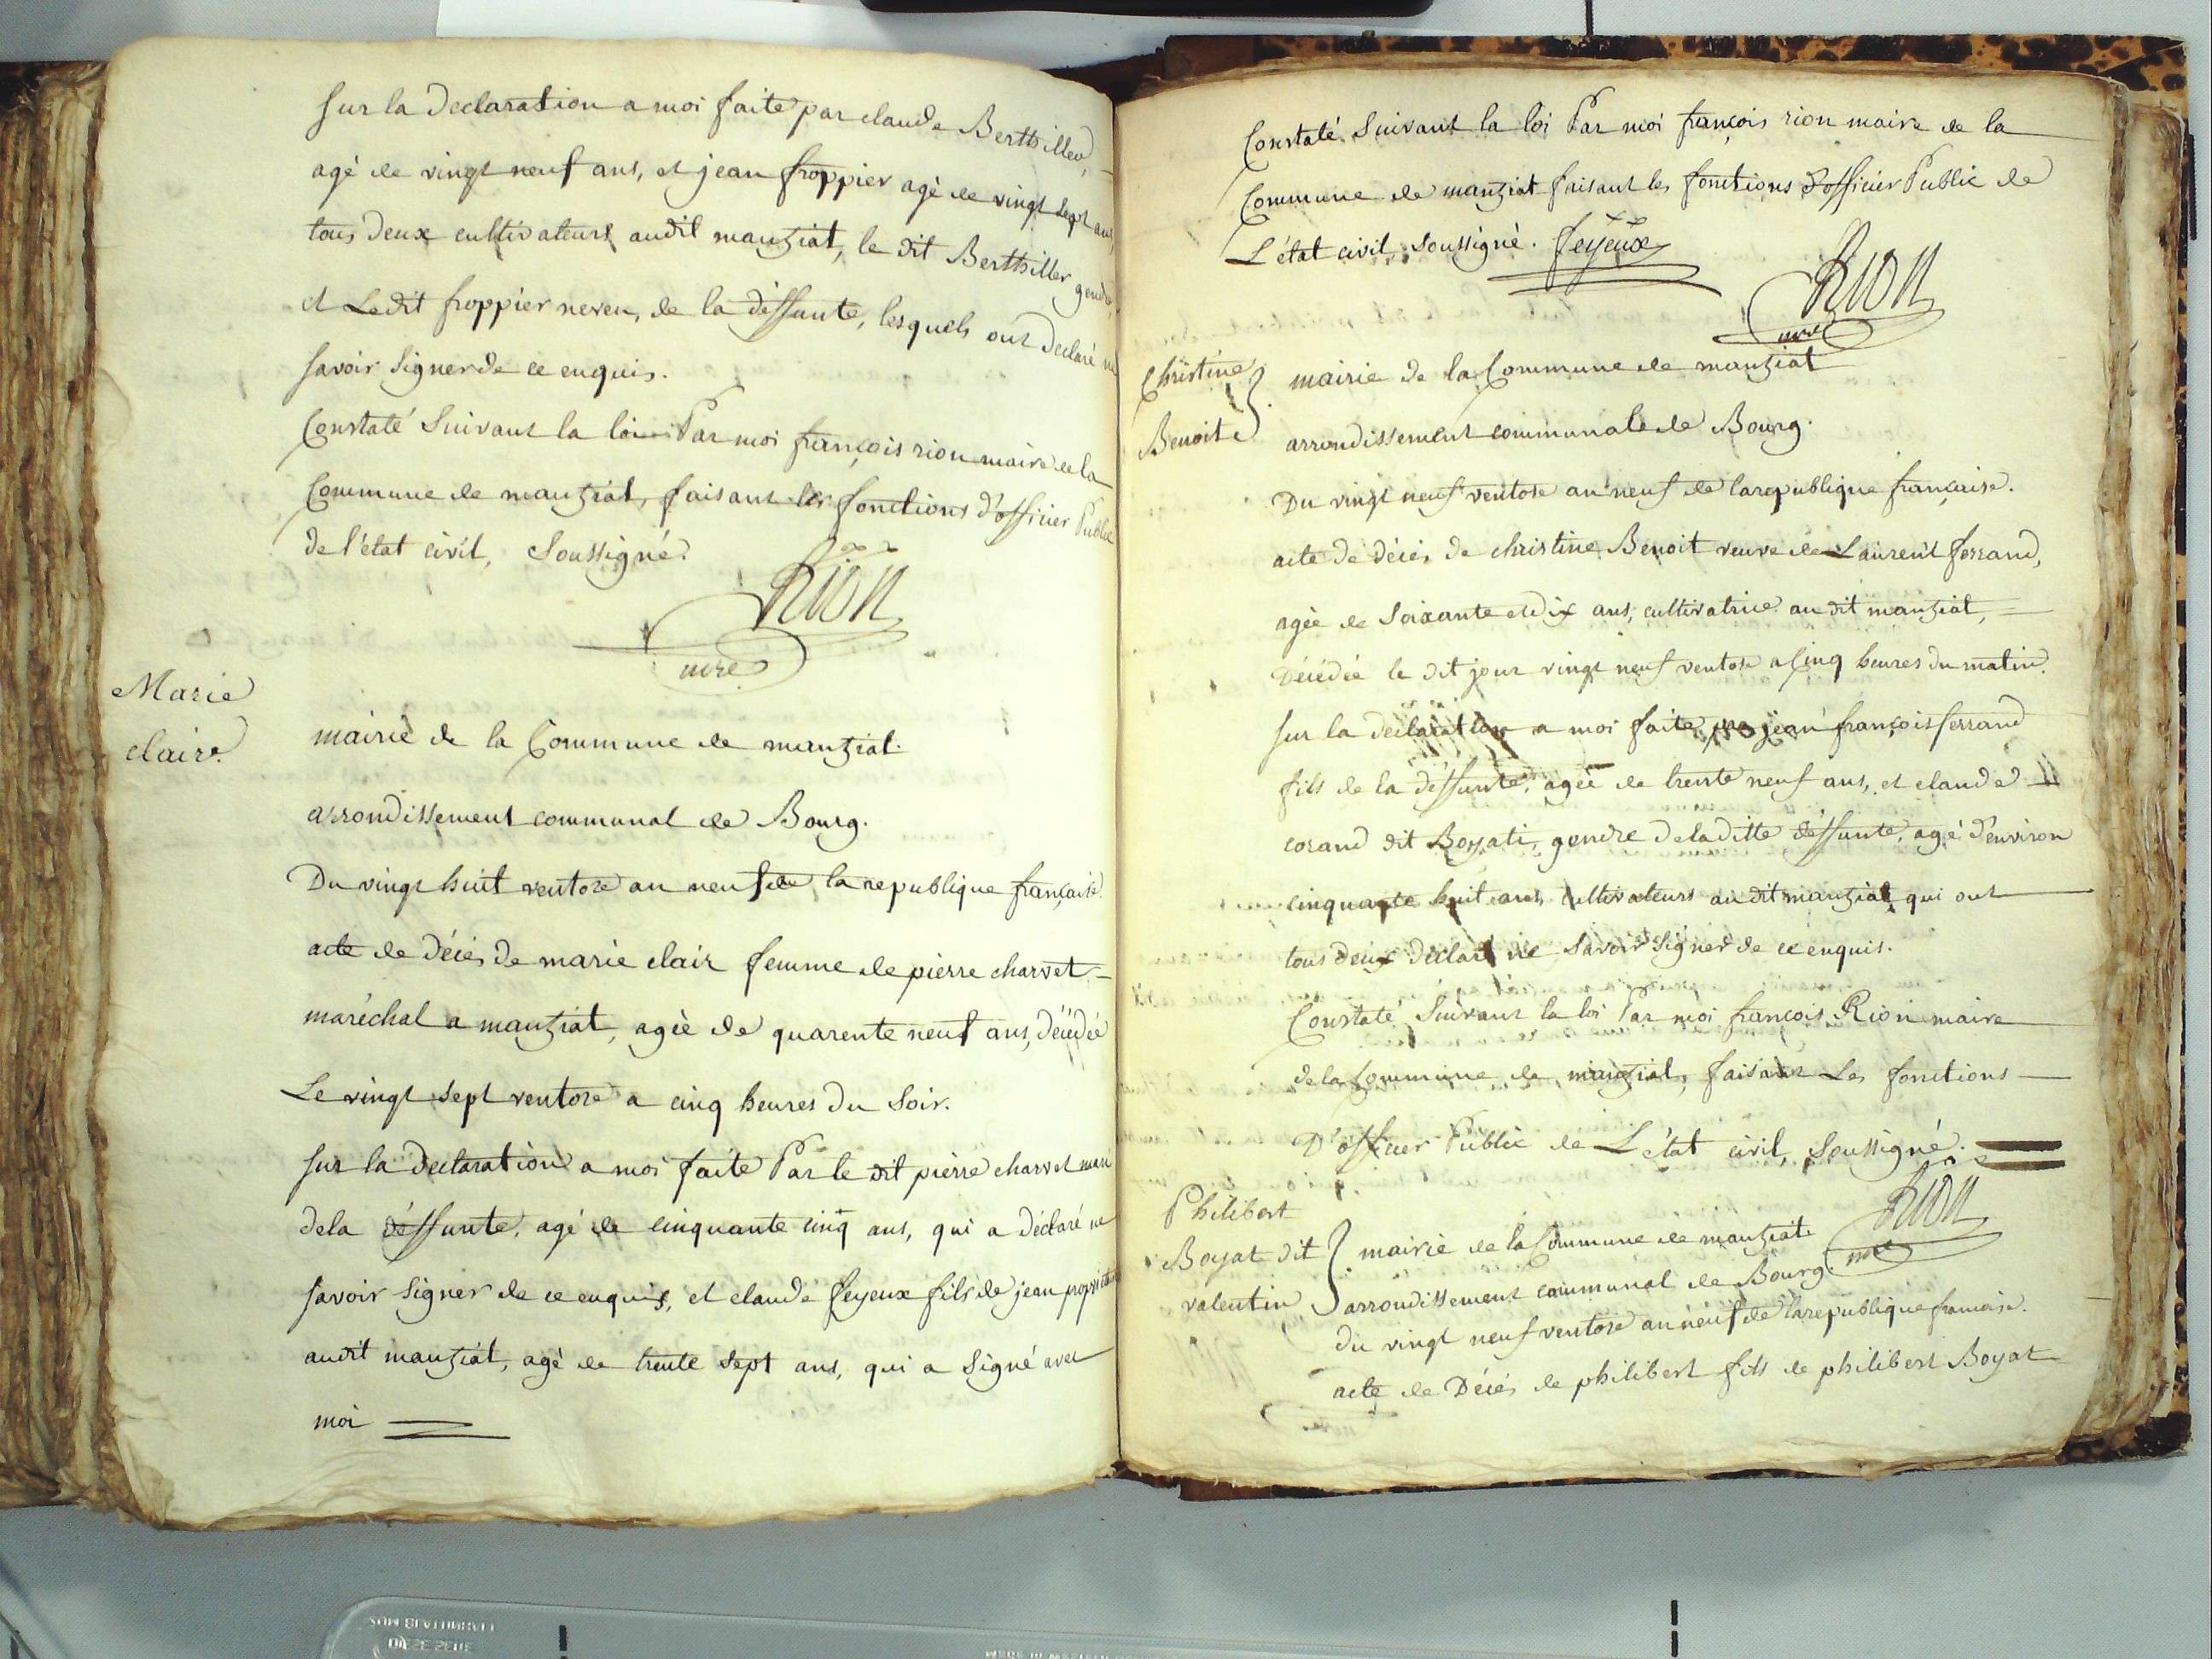 Sur la Declaration a moi faite par claude Berthiller,
agé de vingt neuf ans, et jean froppier agé de vingt sept ans
tous deux cultivateurs audit manziat, le dit Berthiller gendre
et Ledit froppier neveu, de la déffunte, lesquels ont declaré ne
savoir signer de ce enquis.
Constaté Suivant la loi Par moi françois rion maire de la
Commune de manziat, faisant les fonctions d'officier Public
de l'état civil, Soussigné.
Rion
mre
Marie
claire
mairie de la Commune de manziat.
arrondissement communal de Bourg.
Du vingt huit ventose an neuf de la republique française
acte de décés de marie clair femme de pierre charvet
maréchal a manziat, agée de quarente neuf ans, décédée
Le vingt sept ventose a cinq heures du Soir.
Sur la declaration a moi faite Par le dit pierre charvet mari
dela déffunte, agé de cinquante cinq ans, qui a déclaré ne
savoir signer de ce enquis, et claude feyeux fils de jean
audit manziat, agé de trente sept ans, qui a Signé avec
moi
Constaté Suivant la loi Par moi françois rion maire de la
Commune de manziat faisant les fonctions d'officier Public de
L'état civil soussigné. feyeux
Rion
mre
Christine
Benoit
mairie de la Commune de manziat
arrondissement communale de Bourg.
Du vingt neuf ventose an neuf de la republique française.
acte de décés de christine Benoit veuve de Laurent ferrand,
agée de Soixante et dix ans, cultivatrice au dit manziat,
Décédée le dit jour vingt neuf ventose a Cinq heures du matin.
Sur la declaration a moi faite par jean françois ferrand
fils de la déffunte, agée de trente neuf ans, et claude
corand dit Boyati, gendre de la ditte déffunte, agé d'environ
cinquante huit ans, cultivateurs au dit manziat, qui ont
tous deux déclaré ne Savoir Signer de ce enquis.
Constaté Suivant la loi Par moi françois Rion maire
de la Commune de manziat, faisant Les fonctions
D'officier Public de L'état civil, Soussigné.
Rion
mre
Philibert
Boyat dit
valentin
mairie de la Commune de manziat
arrondissement communal de Bourg.
du vingt neuf ventose an neuf de la republique francaise.
acte de Décés de philibert fils de philibert Boyat